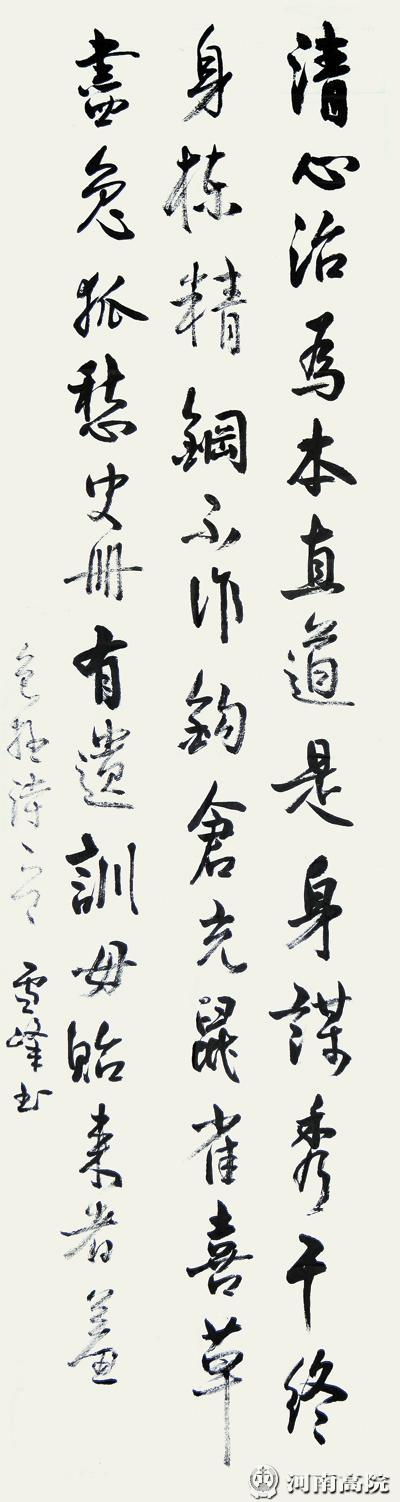 清心治為本直道是身謀秀干終
身棟精鋼不作鈎倉充鼠雀喜草
盡兔狐愁史冊有遺訓毋貽来者羞
包拯詩一首 雪峰书
河南高院